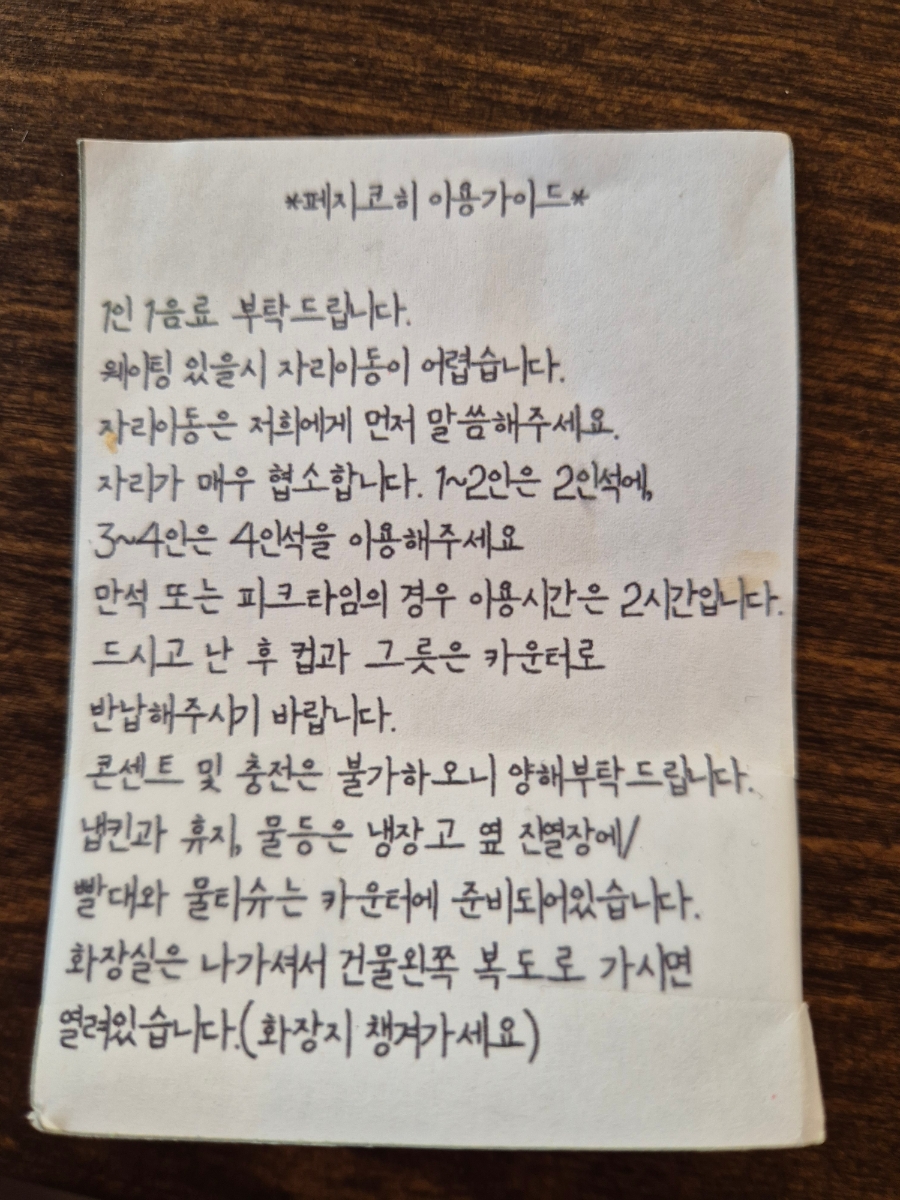 *페지코히 이용가이드*
1인 1음료 부탁드립니다.
웨이팅 있을시 자리이동이 어렵습니다.
자리이동은 저희에게 먼저 말씀해주세요.
자리가 매우 협소합니다. 1~2인은 2인석에,
3~4인은 4인석을 이용해주세요
만석 또는 피크타임의 경우 이용시간은 2시간입니다.
드시고 난 후 컵과 그릇은 카운터로
반납해주시기 바랍니다.
콘센트 및 충전은 불가하오니 양해부탁드립니다.
냅킨과 휴지, 물등은 냉장고 옆 진열장에/
빨대와 물티슈는 카운터에 준비되어있습니다.
화장실은 나가셔서 건물왼쪽 복도로 가시면
열려있습니다.(화장지 챙겨가세요)